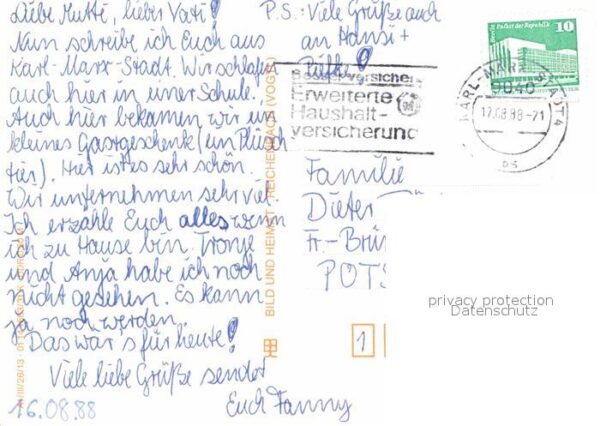 Liebe Mutti, lieber Vati!
Nun schreibe ich Euch aus
Karl-Marx-Stadt. Wir schlafen
auch hier in einer Schule.
Auch hier bekamen wir ein
kleines Gastgeschenk (ein Plüsch
tier). Hier ist es sehr schön.
Wir unternehmen sehr viel.
Ich erzähle Euch alles wenn
ich zu Hause bin. Tronje
und Anja habe ich noch
nicht gesehen. Es kann
ja noch werden.
Das war's für heute!
Viele liebe Grüße sendet
Euch Fanny
16.08.88
P.S.: Viele Grüße auch
an Hansi +
BILD UND HEIMAT REICHENBACH (VOGTL)
Besser versichert
Erweiterte
Haushalt-
versicherung
Berlin, Palast der Republik
10
KARL-MARX-STADT 4
9040
17.08.88-21
Familie
Dieter
Fr.-Brün
POTS
privacy protection
Datenschutz
1